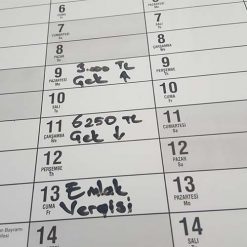 6
CUMA
Fr
7
CUMARTESİ
Sa
7
SALI
Tu
8
PAZAR
Su
8
ÇARŞAMBA
We
9
PAZARTESİ
Mo
3.000 TL
Gek ↑
9
PERŞEMBE
Th
10
SALI
Tu
10
CUMA
Fr
11
ÇARŞAMBA
We
6250 TL
Gek ↓
11
CUMARTESİ
Sa
12
PERŞEMBE
Th
12
PAZAR
Su
13
CUMA
Fr
Emlak
Vergisi
13
PAZARTESİ
Mo
Bayramı
14
14
SALI
Tu